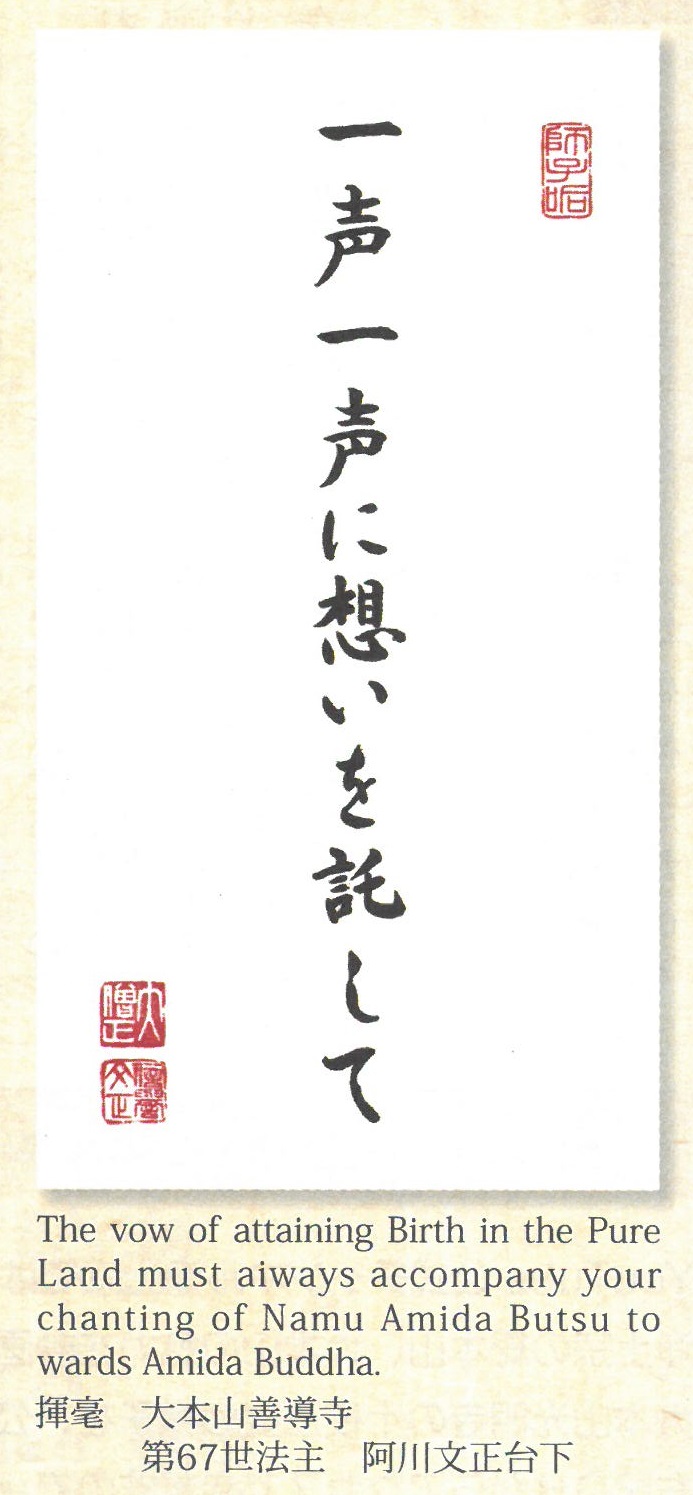 一声一声に想いを託して
大僧正
The vow of attaining Birth in the Pure
Land must aiways accompany your
chanting of Namu Amida Butsu to
wards Amida Buddha.
揮毫　大本山善導寺
第67世法主　阿川文正台下